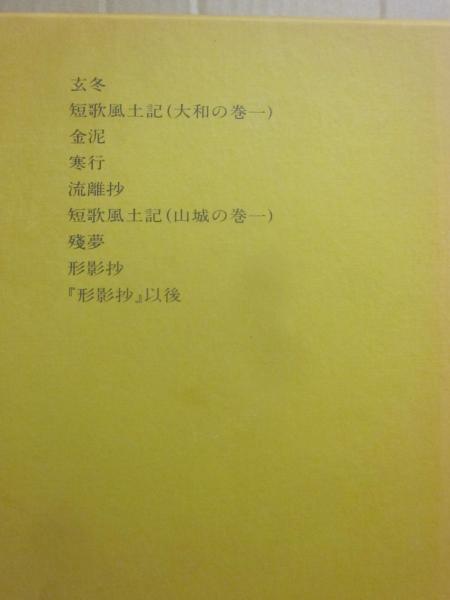 玄冬
短歌風土記(大和の巻一)
金泥
寒行
流離抄
短歌風土記(山城の巻一)
殘夢
形影抄
『形影抄』以後